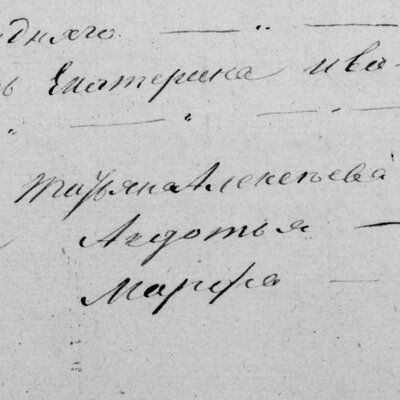 дняго — „ —
ъ Екатерина ива-
„ — „ —
Татьяна Алексеева
Авдотья —
Марфа —